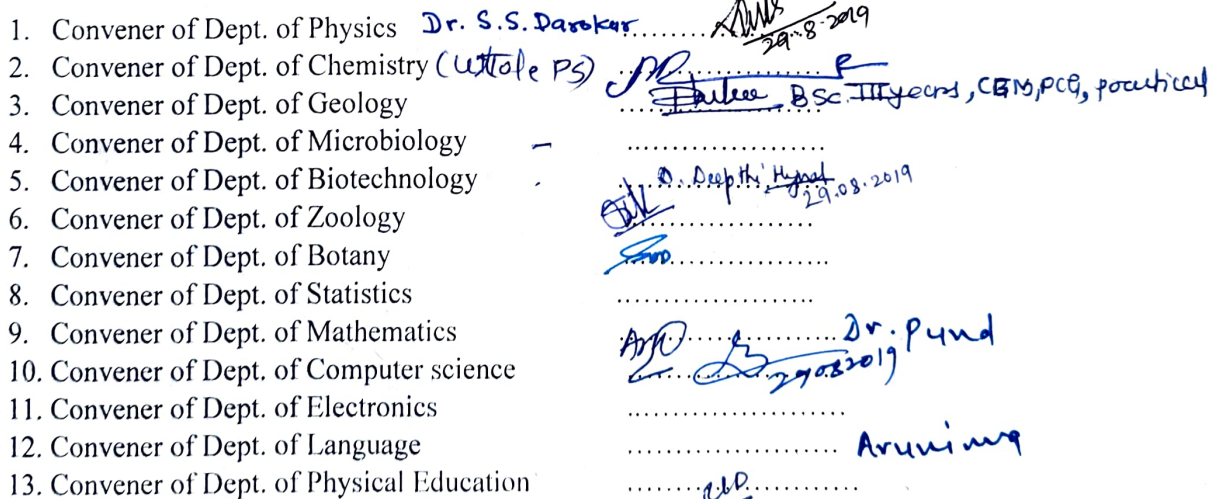 1. Convener of Dept. of Physics Dr. S.S. Darokar .......... 29.8.2019
2. Convener of Dept. of Chemistry (Uttale PS) ....................
3. Convener of Dept. of Geology .................... BSc. III years, CGM, PCG, practical
4. Convener of Dept. of Microbiology – ....................
5. Convener of Dept. of Biotechnology . .................... D. Deepthi 29.08.2019
6. Convener of Dept. of Zoology ....................
7. Convener of Dept. of Botany ....................
8. Convener of Dept. of Statistics ....................
9. Convener of Dept. of Mathematics .................... Dr. Pund
10. Convener of Dept. of Computer science .................... 29082019
11. Convener of Dept. of Electronics ......................
12. Convener of Dept. of Language ...................... Arunima
13. Convener of Dept. of Physical Education ......................